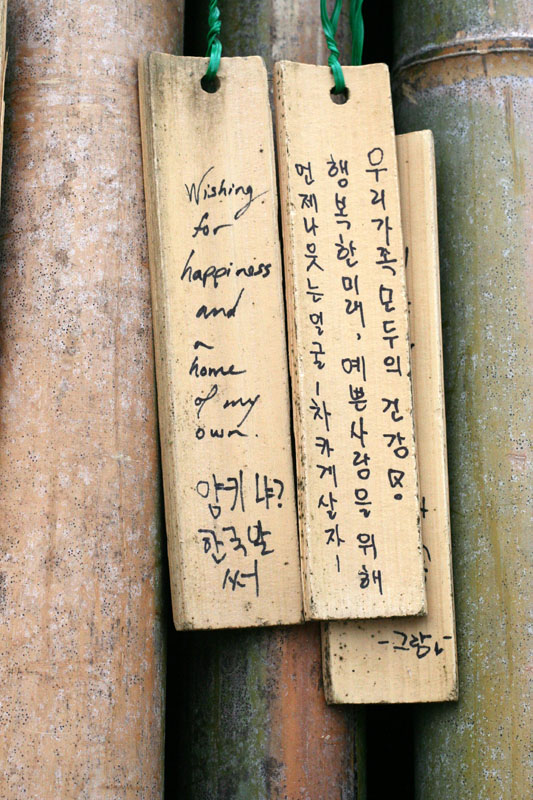 Wishing
for
happiness
and
a
home
of my
own.
양키 냐?
한국말
써
우리가족모두의 건강및
행복한미래, 예쁜사람을 위해
언제나웃는얼굴-차카게살자-